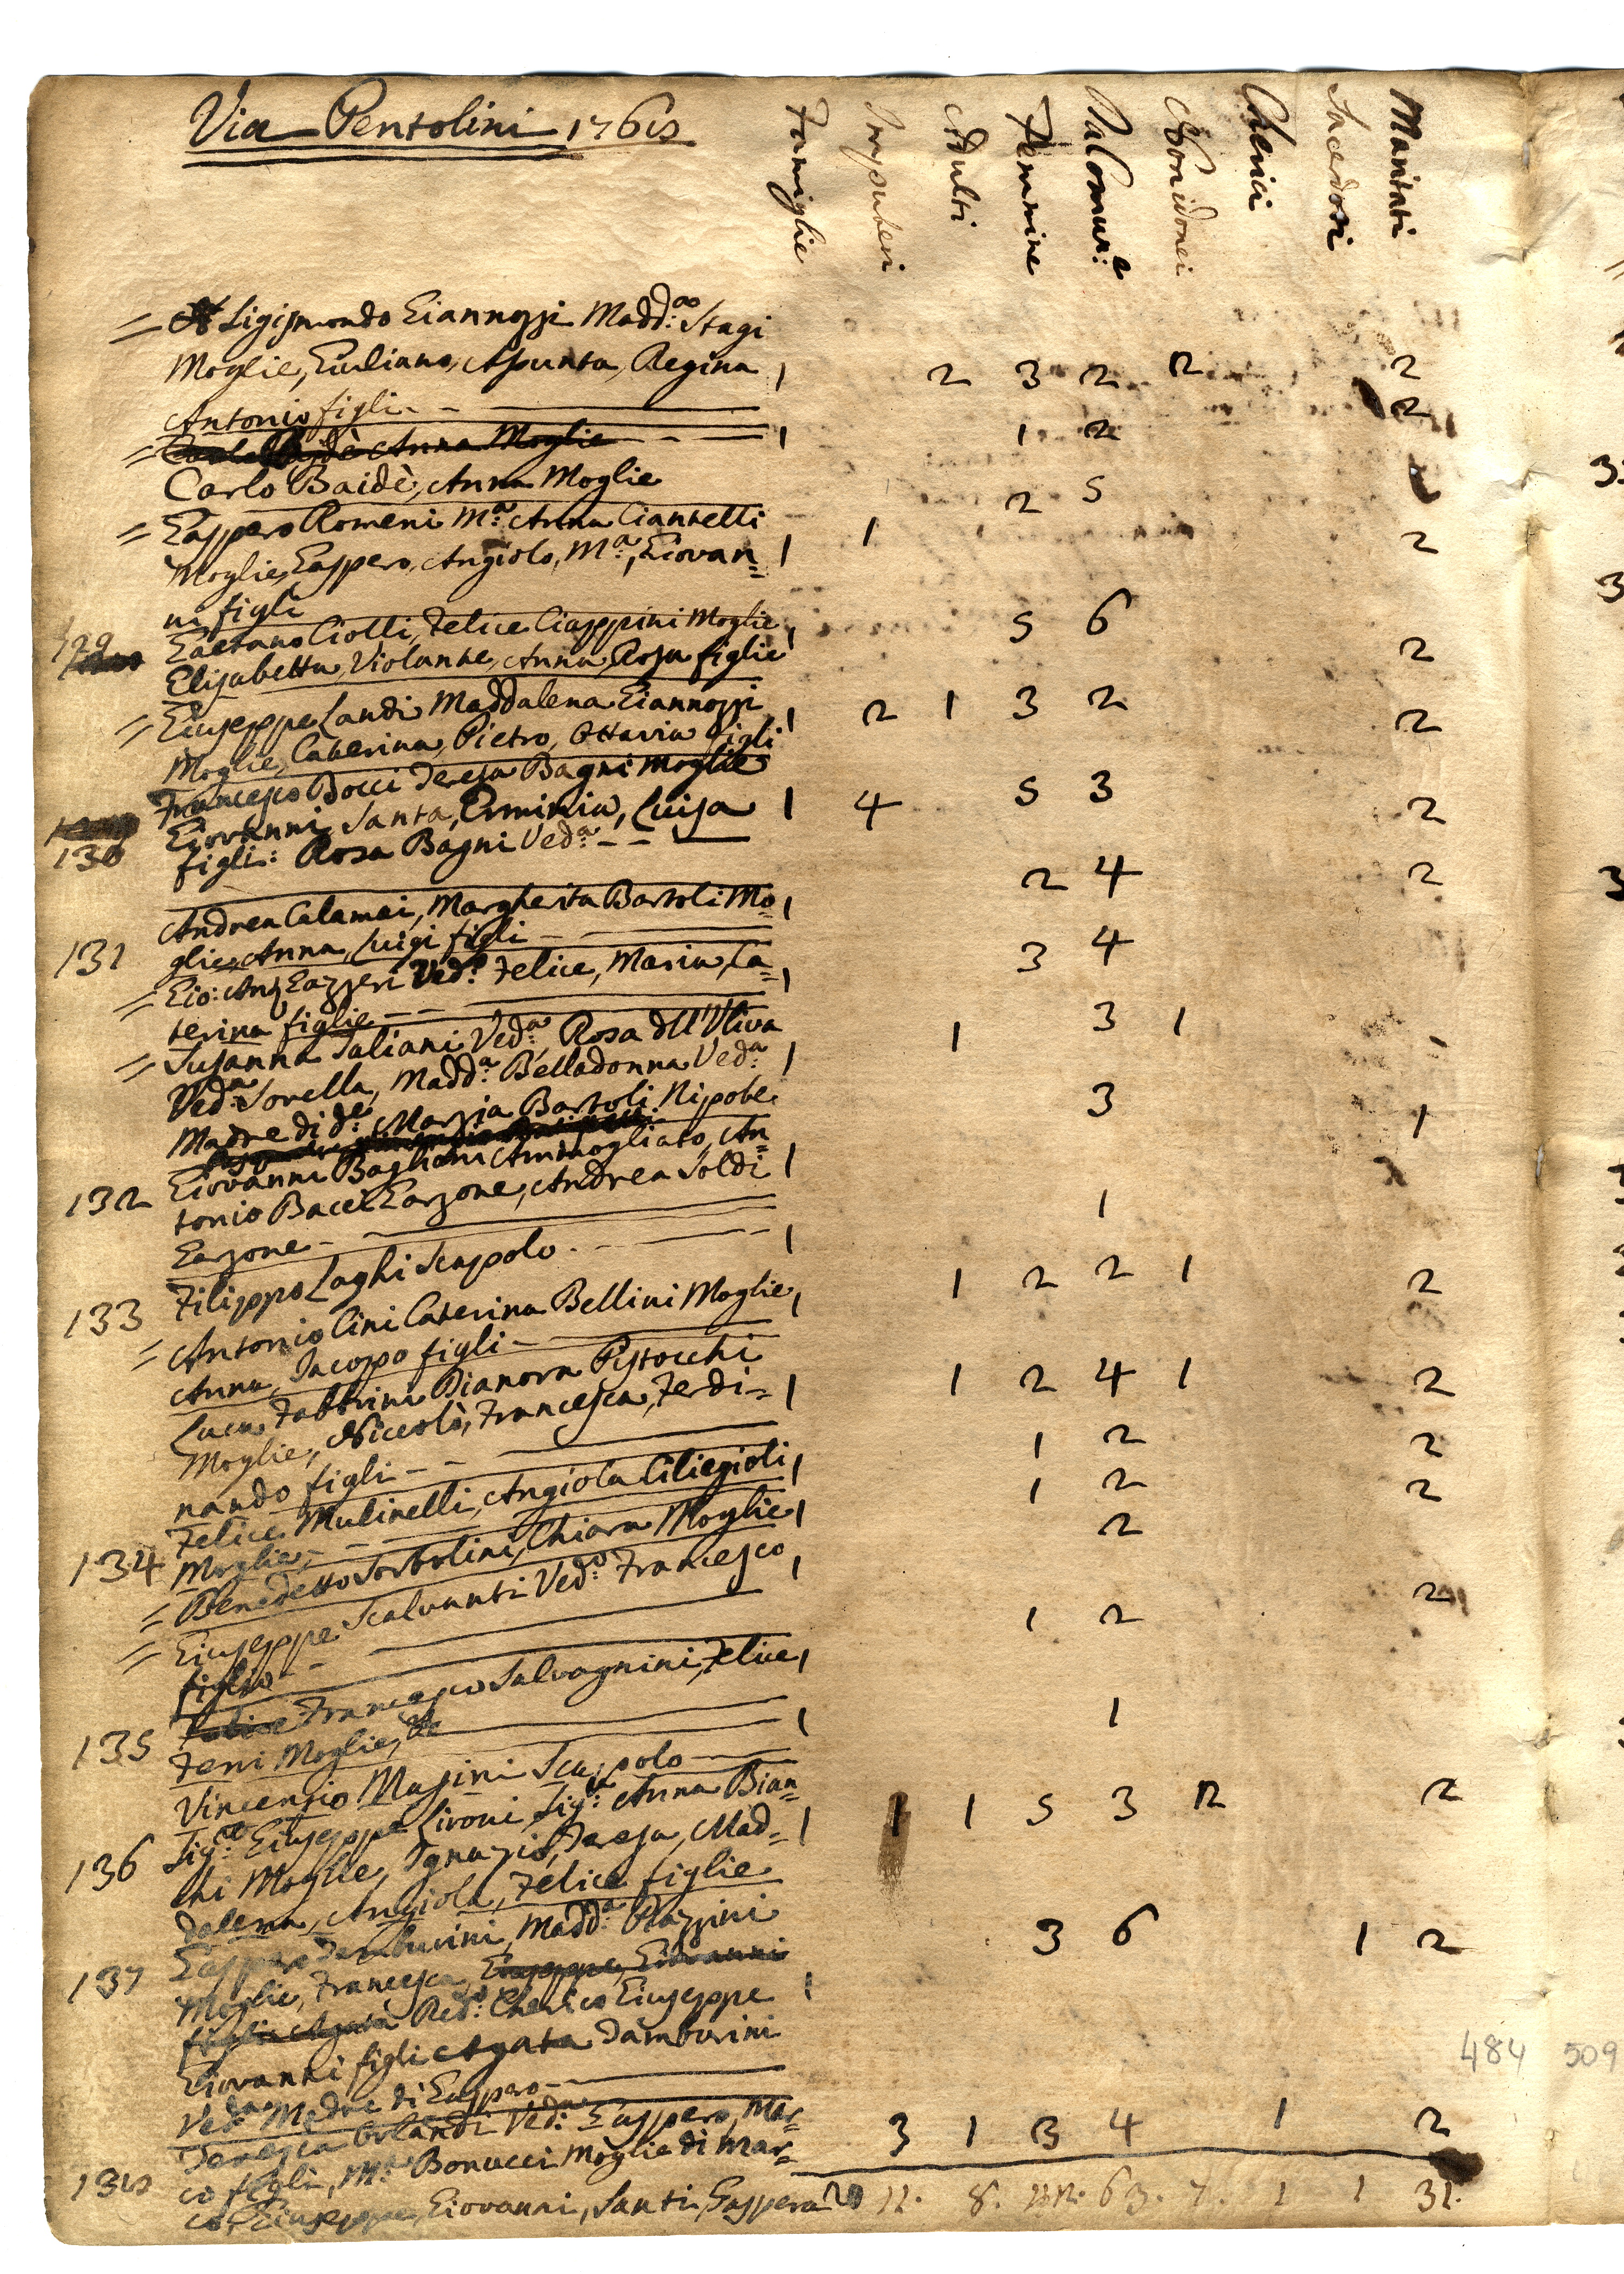 Via Pentolini 176
Famiglie Impuberi Adulti Femmine Da Comun:e Non idonei Cherici Sacerdoti Maritati
= Sigismondo Giannozzi Madd:a Stagi
Moglie, Giuliano, Assunta, Regina 1 2 3 2 2 2
Antonio figli
= Anna Moglie 1 1 2 2
Carlo Baidè, Anna Moglie
= Gasspero Romeni M:a Anna Ciantelli 2 5
Moglie, Gasspero, Angiolo, M:a, Giovan= 1 1 2
ni figli
129 Gaetano Ciolli, Felice Ciappini Moglie 1 5 6
Elisabetta, Violante, Anna, Rosa figlie 2
= Giuseppe Landi Maddalena Giannozzi 1 2 1 3 2 2
Moglie, Caterina, Pietro, Ottavia figli
Francesco Bocci Teresa Bagni moglie
130 Giovanni, Santa, Erminia, Luisa 1 4 5 3 2
figli: Rosa Bagni Ved:a
Andrea Calamai, Margherita Bartoli Mo= 1 2 4 2
131 glie, Anna, Luigi figli
= Gio: Ang Gazzeri Ved:o Felice, Maria, Ca= 1 3 4
terina figlie
= Susanna Taliani Ved:a, Rosa dll'Uliva 1 3 1
Ved:a Sorella, Madd:a Belladonna Ved:a 1
Madre di d:e Marzia Bartoli Nipote
132 Giovanni Baglioni Ammogliato, An= 3 1
tonio Bacci Garzone, Andrea Soldi 1
Garzone
133 Filippo Laghi Scapolo 1 1
= Antonio Cini Caterina Bellini Moglie, 1 1 2 2 1 2
Anna, Jacopo figli
Luca Fabbrini Dianora Pistocchi
Moglie, Niccolò, Francesca, Ferdi= 1 1 2 4 1 2
nando figli
Felice Mulinelli, Angiola Ciliegioli 1 1 2 2
134 Moglie
= Benedetto Sorbolini, Chiara Moglie 1 1 2 2
= Giuseppe Scalvanti Ved:o Francesco 1 2
figlio
Francesco Salvagnini, Felice 1 1 2 2
135 Feri Moglie
Vincenzio Masini Scapolo 1 1
136 Sig:re Giuseppe Lironi Sig:a Anna Bian=
chi Moglie, Ignazio, Teresa, Mad= 1 1 1 5 3 2 2
dalena, Angiola, Felice figlie
137 Gasspero Tamburini, Madd:a Razzini
Moglie, Francesca, Giuseppe, Giovanni 1 3 6 1 2
Red:o Cherico Giuseppe
Giovanni figli Agata Tamburini
Ved:a Madre di Gasspero
Teresia Orlandi Ved:a Gasspero, Mar=
138 co figli, M:a Bonucci Moglie di Mar= 3 1 3 4 1 2
co, Giuseppe, Giovanni, Santi, Gasspera
20 12. 8. 63. 7. 1 1 31.
484 509